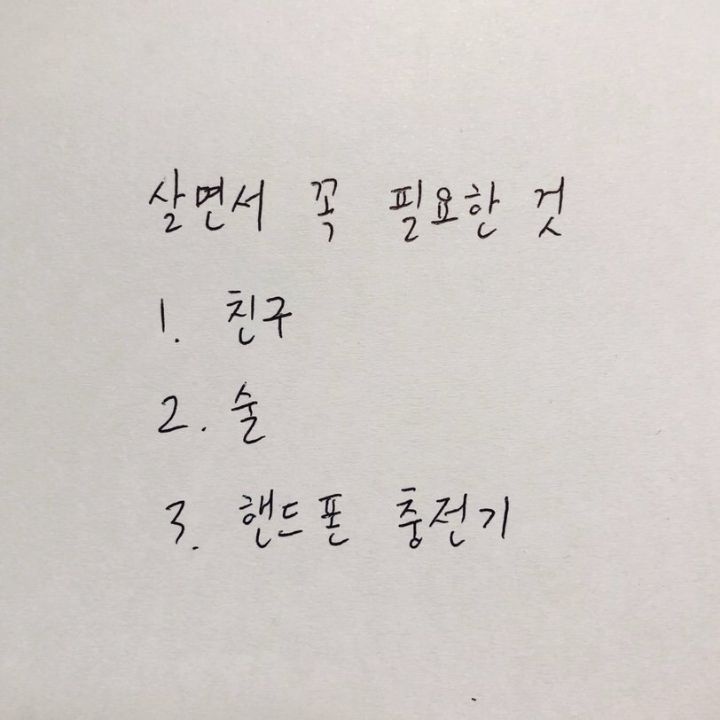 살면서 꼭 필요한 것
1. 친구
2. 술
3. 핸드폰 충전기